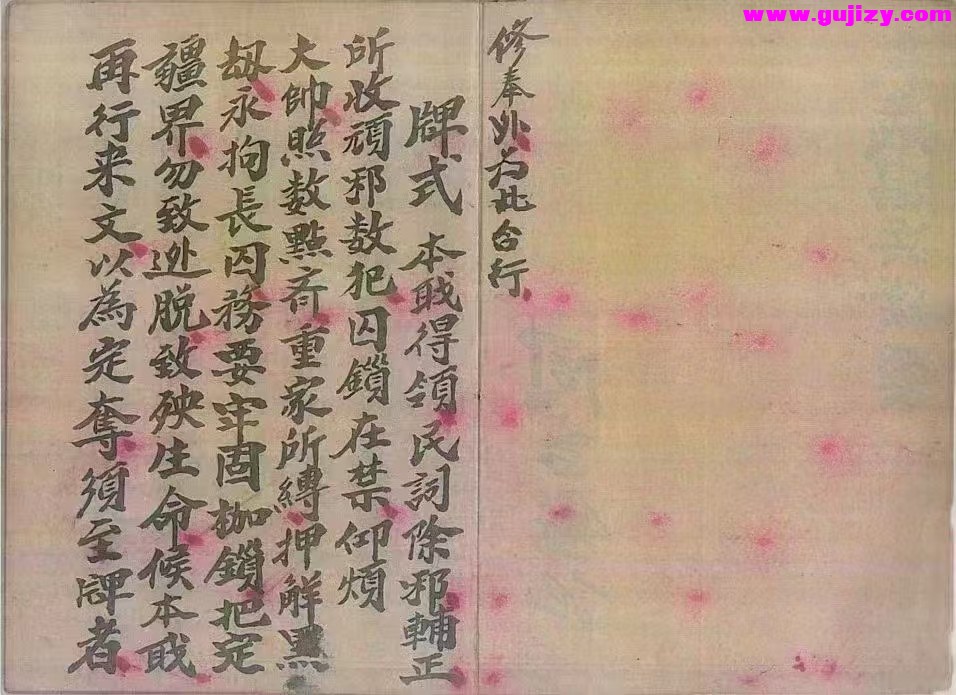 www.gujizy.com
修奉外为此合行
牌式 本戝得領民詞除邪輔正
所收頑邪数犯囚鎖在禁仰煩
大帥照数點斉重家所縛押解黑
刼永拘長囚務要牢固枷鎖把定
疆界勿致迯脱致殃生命候本戝
再行来文以為定奪須至牌者